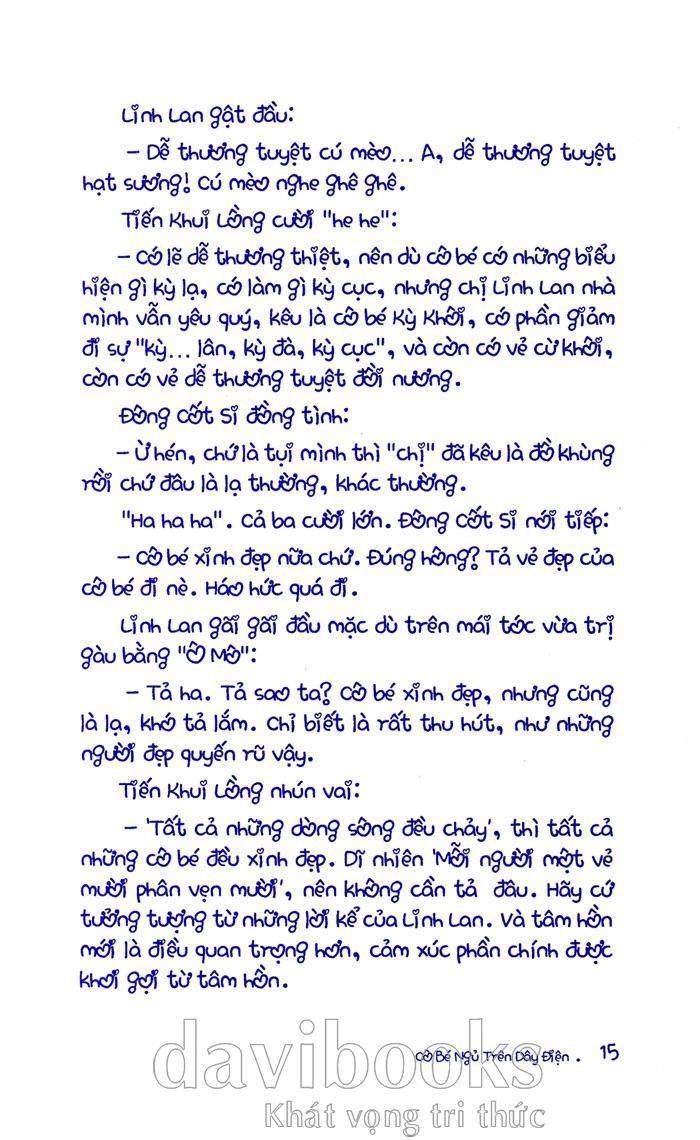 Linh Lan gật đầu:
– Dễ thương tuyệt cú mèo... A, dễ thương tuyệt
hạt sương! Cú mèo nghe ghê ghê.
Tiến Khui Lồng cười "he he":
– Có lẽ dễ thương thiệt, nên dù cô bé có những biểu
hiện gì kỳ lạ, có làm gì kỳ cục, nhưng chị Linh Lan nhà
mình vẫn yêu quý, kêu là cô bé Kỳ Khôi, có phần giảm
đi sự "kỳ... lân, kỳ đà, kỳ cục", và còn có vẻ cừ khôi,
còn có vẻ dễ thương tuyệt đồi nương.
Đông Cốt Si đồng tình:
– Ừ hén, chứ là tụi mình thì "chị" đã kêu là đồ khùng
rồi chứ đâu là lạ thường, khác thường.
"Ha ha ha". Cả ba cười lớn. Đông Cốt Si nói tiếp:
– Cô bé xinh đẹp nữa chứ. Đúng hông? Tả vẻ đẹp của
cô bé đi nè. Háo hức quá đi.
Linh Lan gãi gãi đầu mặc dù trên mái tóc vừa trị
gàu bằng "Ô Mô":
– Tả ha. Tả sao ta? Cô bé xinh đẹp, nhưng cũng
là lạ, khó tả lắm. Chỉ biết là rất thu hút, như những
người đẹp quyến rũ vậy.
Tiến Khui Lồng nhún vai:
– 'Tất cả những dòng sông đều chảy', thì tất cả
những cô bé đều xinh đẹp. Dĩ nhiên 'Mỗi người một vẻ
mười phân vẹn mười', nên không cần tả đâu. Hãy cứ
tưởng tượng từ những lời kể của Linh Lan. Và tâm hồn
mới là điều quan trọng hơn, cảm xúc phần chính được
khơi gợi từ tâm hồn.
Cô Bé Ngủ Trên Dây Điện . 15
davibooks
Khát vọng tri thức